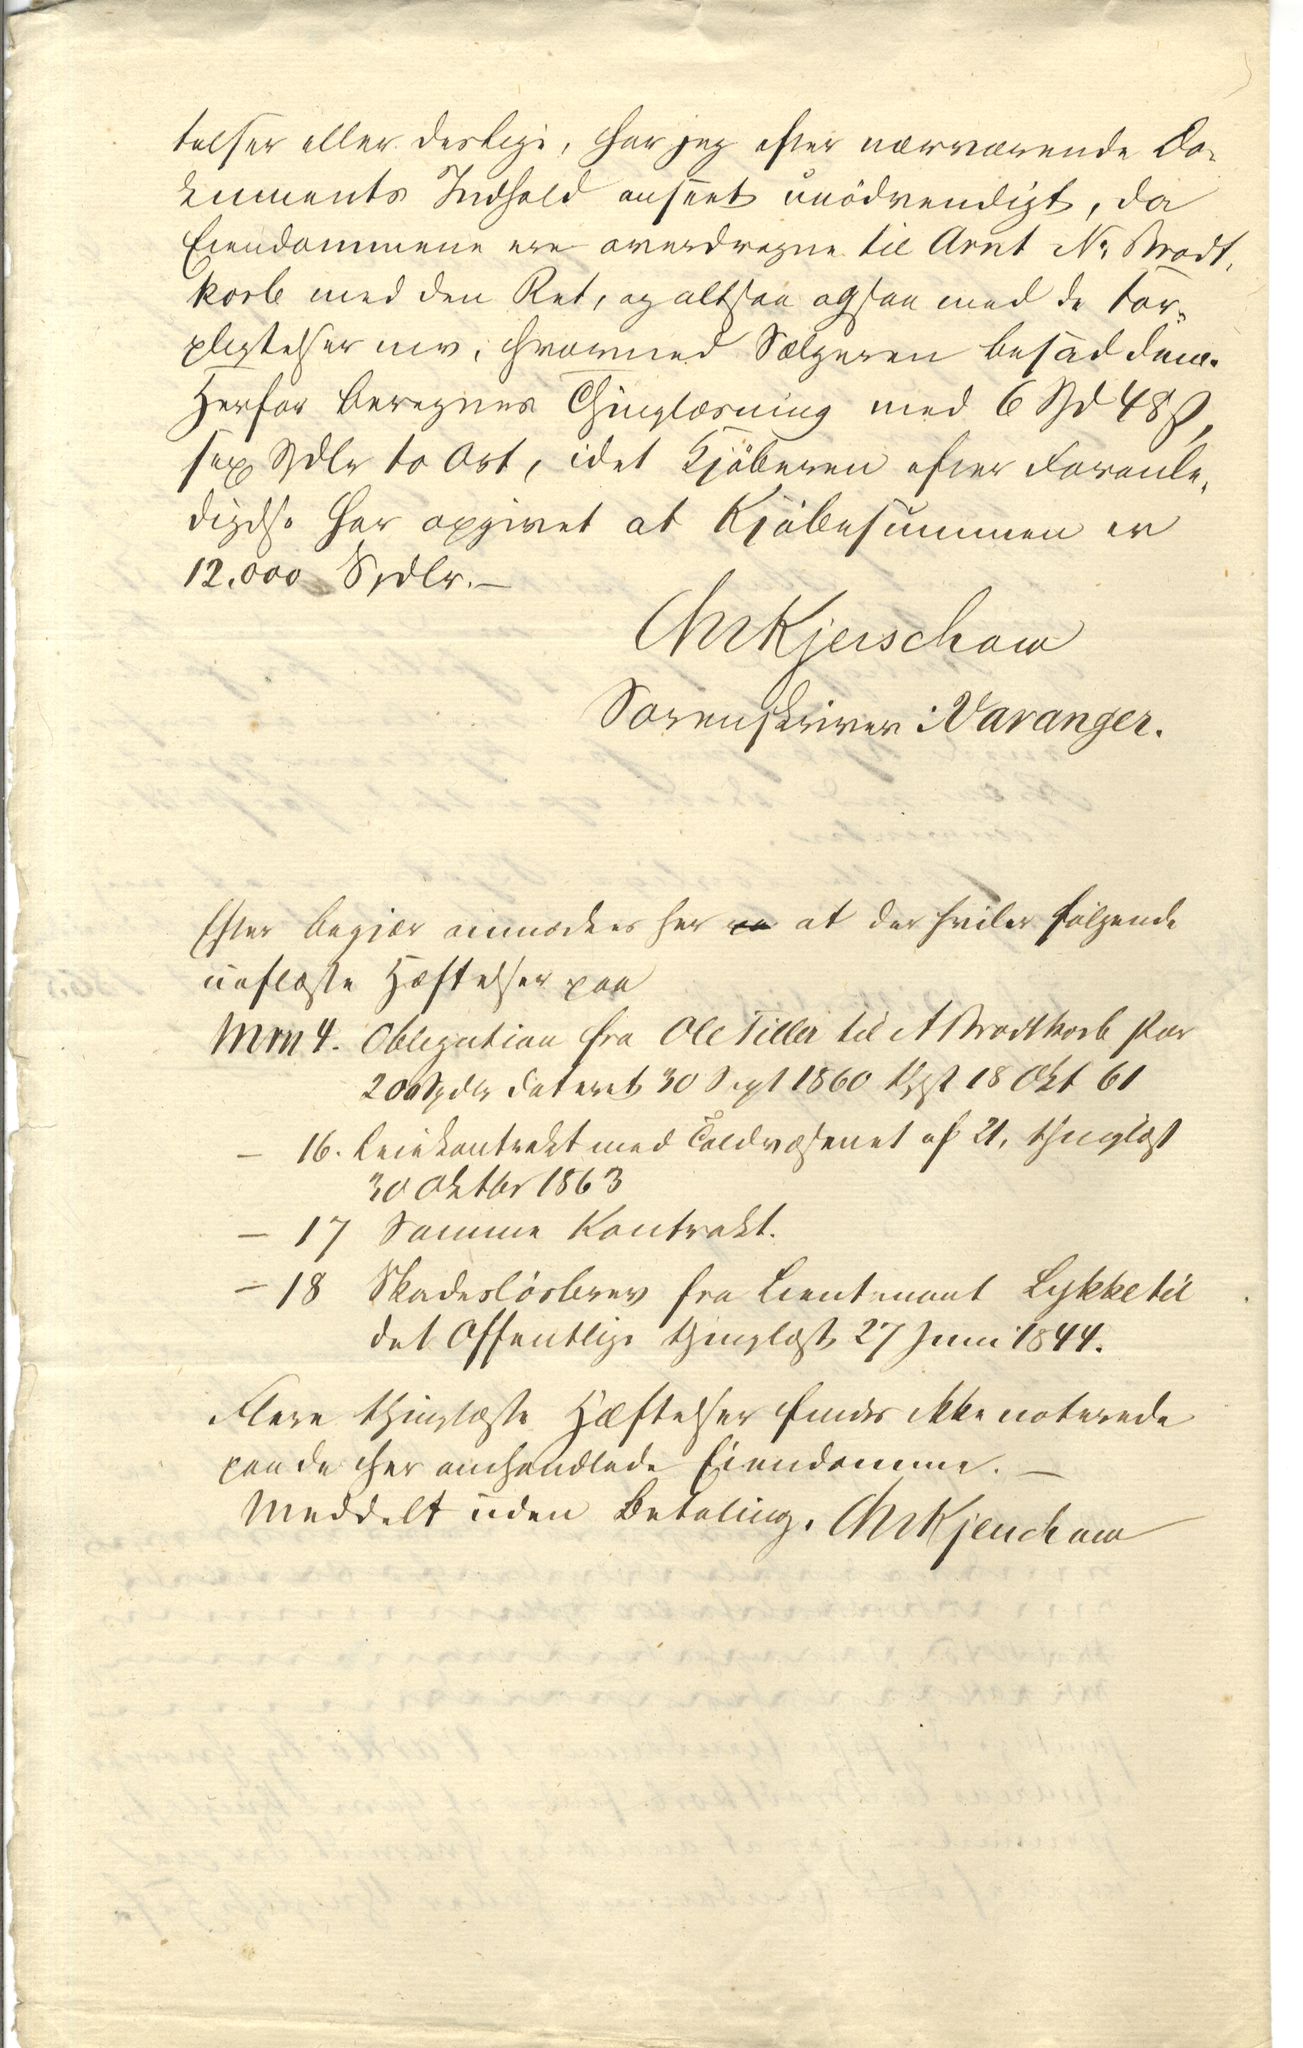 telser eller deslige, har jeg efter nærværende Do-
kuments Indhold anseet unödvendigt, da
Eiendommene ere overdragne til Arnt N. Brodt-
korb med den Ret, og altsaa ogsaa med de For-
pligtelser mv, hvormed Sælgeren besad dem.
Herfor beregnes Thinglæsning med 6 Spd 48 ß,
sex Spdlr to Ort, idet Kjöberen efter Foranle-
digelse har opgivet at Kjöbesummen er
12.000 Spdlr.—
Chr Kjerschow
Sorenskriver i Varanger.
Efter Begjær anmærkes her at der hviler fölgende
uaflæste Hæftelser paa
Mrn 4. Obligation fra Ole Tiller til A Brodtkorb stor
200 Spdlr dateret 30 Sept 1860 thgl 18 Okt 61
— 16. Leiekontrakt med Toldvæsenet af 21, thinglæst
30 Oktbr 1863
— 17 Samme Kontrakt.
— 18 Skadeslösbrev fra Lieutenant Lykke til
det Offentlige thinglæst 27 Juni 1844.
Flere thinglæste Hæftelser findes ikke noterede
paa de her omhandlede Eiendomme. —
Meddelt uden Betaling. Chr Kjerschow